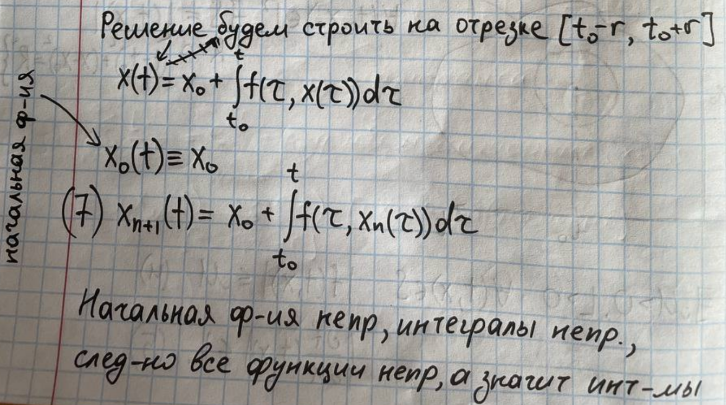 Решение будем строить на отрезке [t₀-r, t₀+r]
x(t) = x₀ + ∫_{t₀}^{t} f(τ, x(τ))dτ
начальная ф-ия
x₀(t) ≡ x₀
(7) xₙ₊₁(t) = x₀ + ∫_{t₀}^{t} f(τ, xₙ(τ))dτ
Начальная ф-ия непр, интегралы непр.,
след-но все функции непр, а значит инт-мы